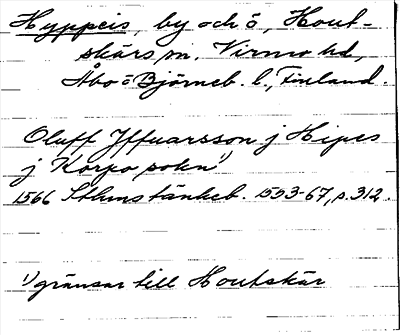 Hyppeis, by och ö, Hout-
skärs sn. Virmo hd,
Åbo o Björneb. l., Finland.
Oluff Yffuarsson j Hipes
j Korpo sokn 1)
1566 Sthms tänkeb. 1553-67, s. 312.
1) gränsar till Houtskär